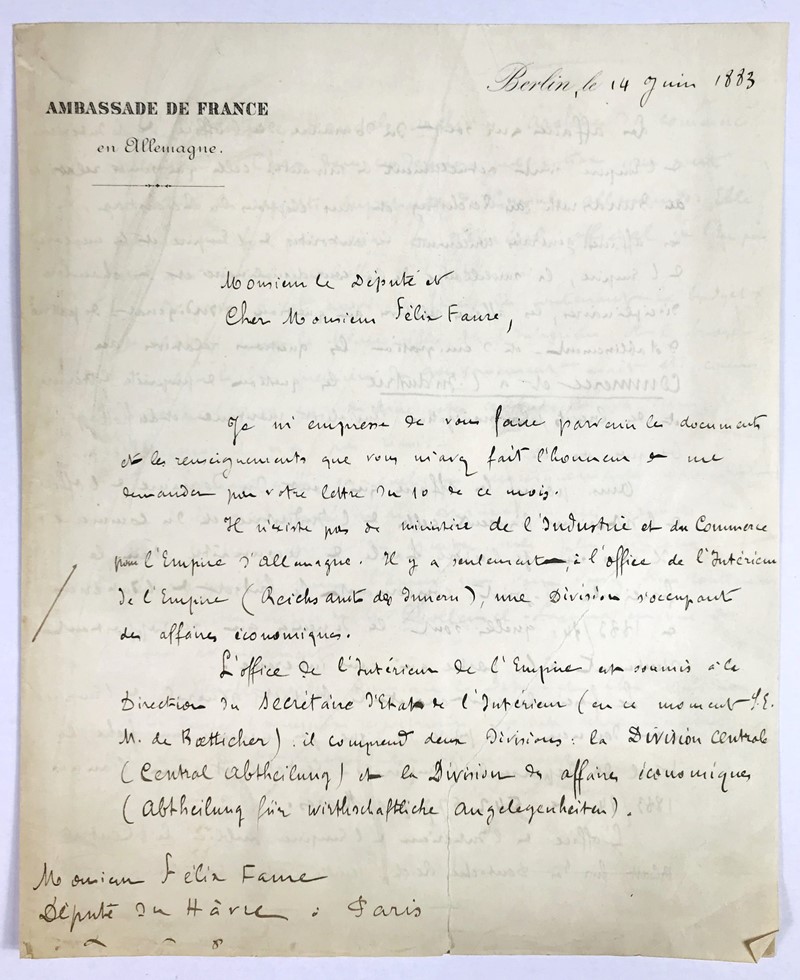 Berlin, le 14 Juin 1883
AMBASSADE DE FRANCE
en Allemagne.
Monsieur le Député et
Cher Monsieur Félix Faure,
Je m'empresse de vous faire parvenir les documents
et les renseignements que vous m'avez fait l'honneur de me
demander par votre lettre du 10 de ce mois.
Il n'existe pas de ministère de l'Industrie et du Commerce
pour l'Empire d'Allemagne. Il y a seulement, à l'office de l'Intérieur
de l'Empire (Reichsamt des Innern), une Division s'occupant
des affaires économiques.
L'office de l'Intérieur de l'Empire est soumis à la
Direction du Secrétaire d'Etat de l'Intérieur (en ce moment S.E.
M. de Bœtticher). il comprend deux Divisions: la Division Centrale
(Central Abtheilung) et la Division des affaires économiques
(Abtheilung für wirthschaftliche Angelegenheiten).
Monsieur Félix Faure
Député du Hâvre à Paris